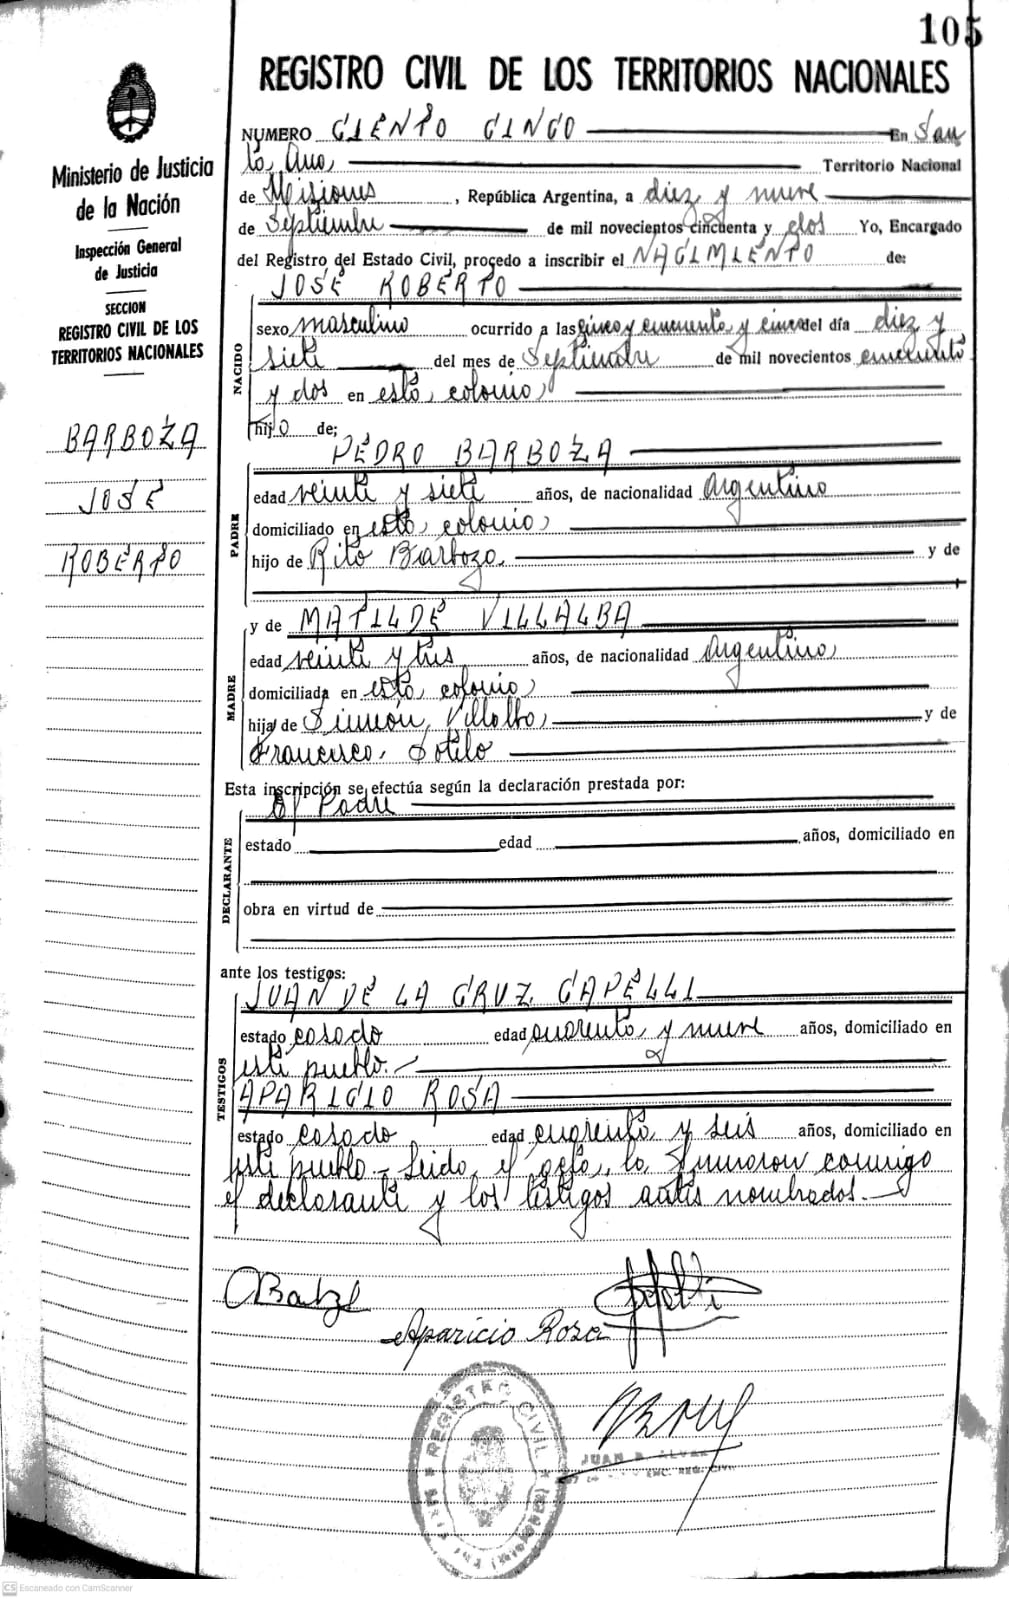 105
REGISTRO CIVIL DE LOS TERRITORIOS NACIONALES
Ministerio de Justicia
de la Nación
Inspección General
de Justicia
SECCION
REGISTRO CIVIL DE LOS
TERRITORIOS NACIONALES
BARBOZA
JOSÉ
ROBERTO
NUMERO CIENTO CINCO En San
ta Ana, Territorio Nacional
de Misiones, República Argentina, a diez y nueve
de Septiembre de mil novecientos cincuenta y dos Yo, Encargado
del Registro del Estado Civil, procedo a inscribir el NACIMIENTO de:
JOSÉ ROBERTO
NACIDO
sexo masculino ocurrido a las cinco y cincuenta y cinco del día diez y
siete del mes de Septiembre de mil novecientos cincuenta
y dos en esta colonia,
hijo de;
PADRE
PEDRO BARBOZA
edad veinte y siete años, de nacionalidad Argentina
domiciliado en esta colonia,
hijo de Rito Barboza. y de
MADRE
y de MATILDE VILLALBA
edad veinte y tres años, de nacionalidad Argentina,
domiciliada en esta colonia,
hija de Simón Villalba, y de
Francisca Sotelo
Esta inscripción se efectúa según la declaración prestada por:
El Padre
DECLARANTE
estado edad años, domiciliado en
obra en virtud de
ante los testigos:
TESTIGOS
JUAN DE LA CRUZ CAPELLI
estado casado edad cuarenta y nueve años, domiciliado en
este pueblo.
APARICIO ROSA
estado casado edad cuarenta y seis años, domiciliado en
este pueblo - Leida el acta, la firmaron conmigo
el declarante y los testigos antes nombrados.
Aparicio Rosa
REGISTRO CIVIL
JUAN
ENC. REG. CIVIL
CS Escaneado con CamScanner